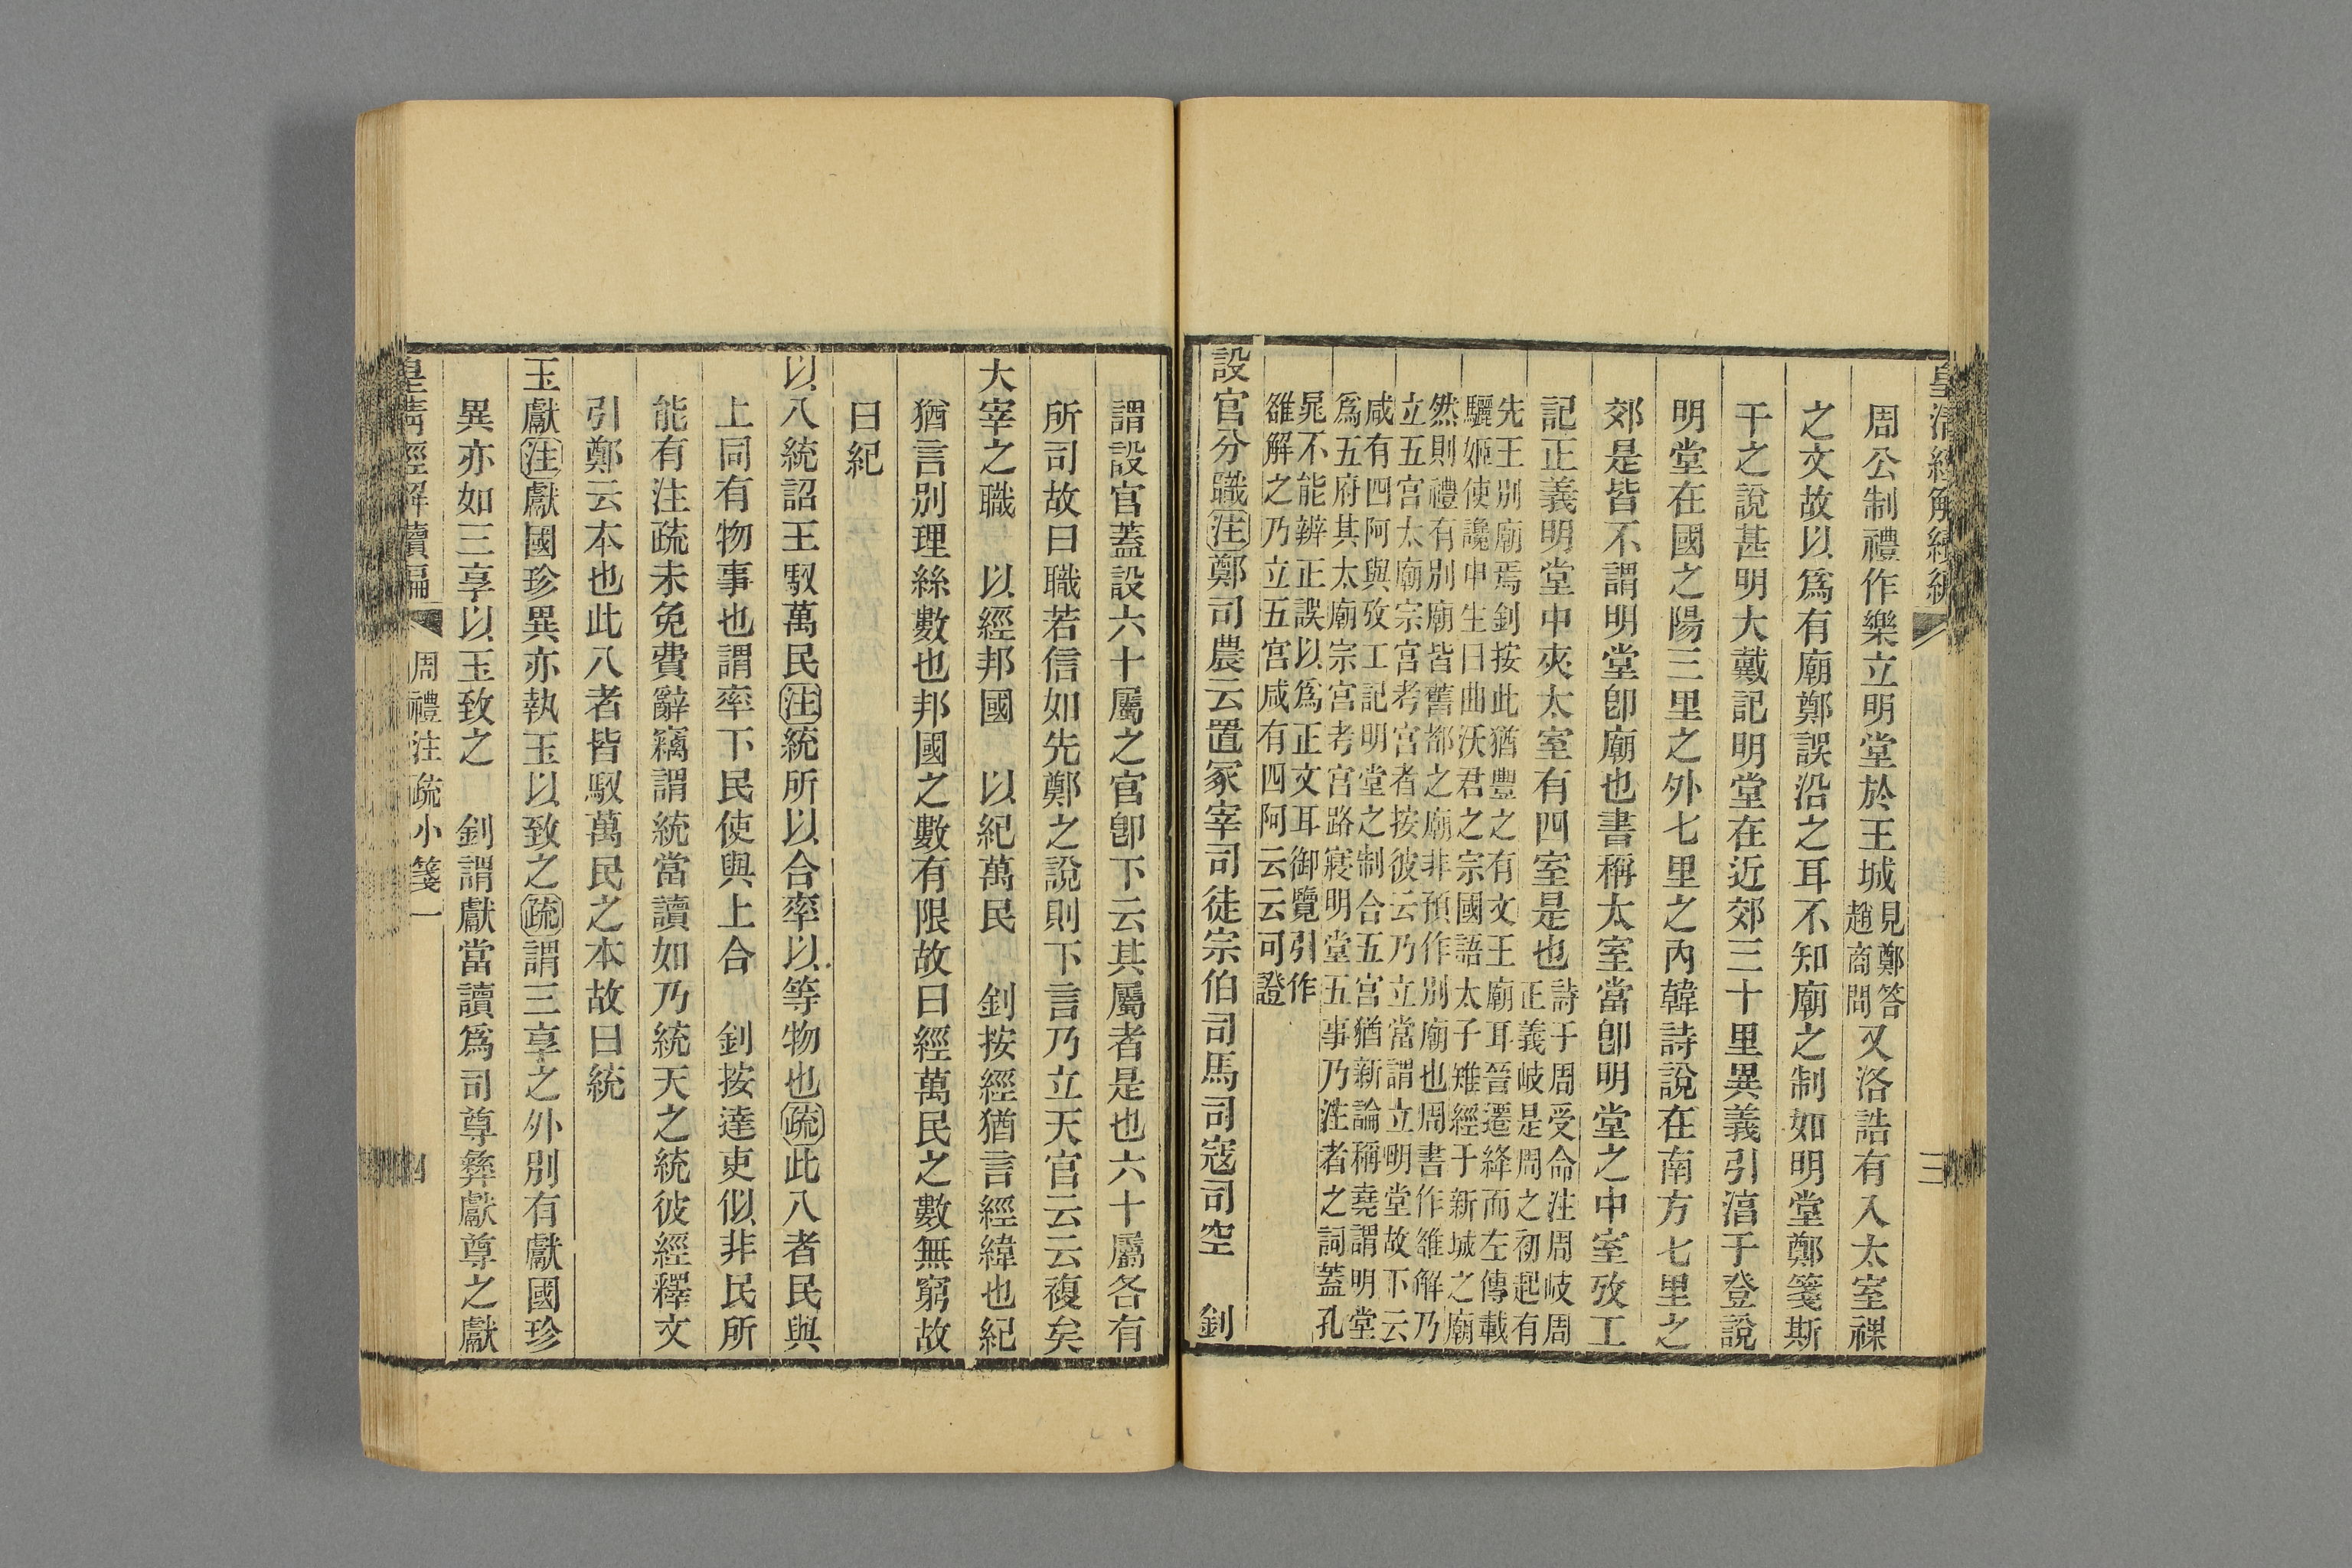 皇清經解續編 三
周公制禮作樂立明堂於王城見鄭答趙商問又洛誥有入太室祼
之文故以爲有廟鄭誤沿之耳不知廟之制如明堂鄭箋斯
干之說甚明大戴記明堂在近郊三十里異義引湻于登說
明堂在國之陽三里之外七里之內韓詩說在南方七里之
郊是皆不謂明堂卽廟也書稱太室當卽明堂之中室攷工
記正義明堂中夾太室有四室是也詩于周受命注周岐周
正義岐是周之初起有
先王別廟焉釗按此猶豐之有文王廟耳晉遷絳而左傳載
驪姬使讒申生曰曲沃君之宗國語太子雉經于新城之廟
然則禮有別廟皆舊都之廟非預作別廟也周書作雒解乃
立五宮太廟宗宮考宮者按彼云乃立當謂立明堂故下云
咸有四阿與攷工記明堂之制合五宮猶新論稱堯謂明堂
爲五府其太廟宗宮考宮路寢明堂五事乃注者之詞蓋孔
晁不能辨正誤以爲正文耳御覽引作
雒解之乃立五宮咸有四阿云云可證
設官分職注鄭司農云置冢宰司徒宗伯司馬司寇司空 釗
謂設官蓋設六十屬之官卽下云其屬者是也六十屬各有
所司故曰職若信如先鄭之說則下言乃立天官云云複矣
大宰之職 以經邦國 以紀萬民 釗按經猶言經緯也紀
猶言別理絲數也邦國之數有限故曰經萬民之數無窮故
曰紀
以八統詔王馭萬民注統所以合率以等物也疏此八者民與
上同有物事也謂率下民使與上合 釗按達吏似非民所
能有注疏未免費辭竊謂統當讀如乃統天之統彼經釋文
引鄭云本也此八者皆馭萬民之本故曰統
玉獻注獻國珍異亦執玉以致之疏謂三享之外別有獻國珍
異亦如三享以玉致之 釗謂獻當讀爲司尊彝獻尊之獻
皇清經解續編 周禮注疏小箋一 四